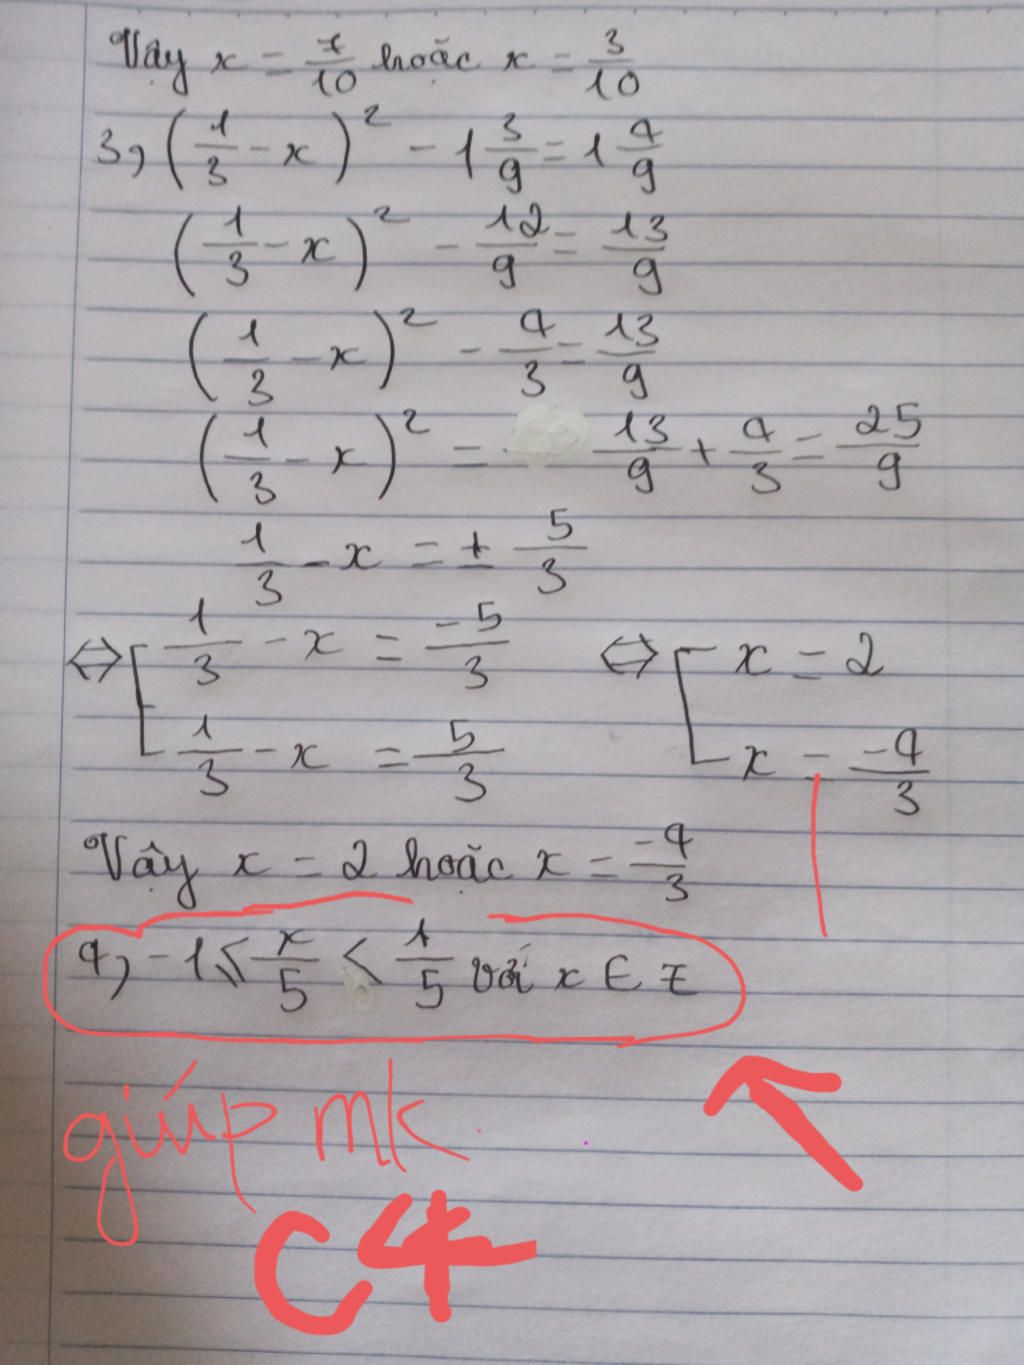 Vậy x = 7/10 hoặc x = 3/10
3, (1/3 - x)² - 1 3/9 = 1 4/9
(1/3 - x)² - 12/9 = 13/9
(1/3 - x)² - 4/3 = 13/9
(1/3 - x)² = 13/9 + 4/3 = 25/9
1/3 - x = ± 5/3
⇔ [ 1/3 - x = -5/3 ⇔ [ x = 2
1/3 - x = 5/3 x = -4/3
Vậy x = 2 hoặc x = -4/3
4, -1 ≤ x/5 < 1/5 với x ∈ Z
giúp mk
C4